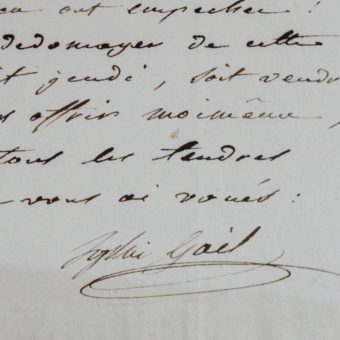 ont empecher !
dedomager de cette
it jeudi, soit vendr
offrir moimême,
tous les tendres
vous ai voués :
Sophie Gail